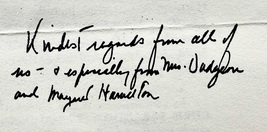 Kindest regards from all of
us - & especially from Mrs. Dudgeon
and Margaret Hamilton